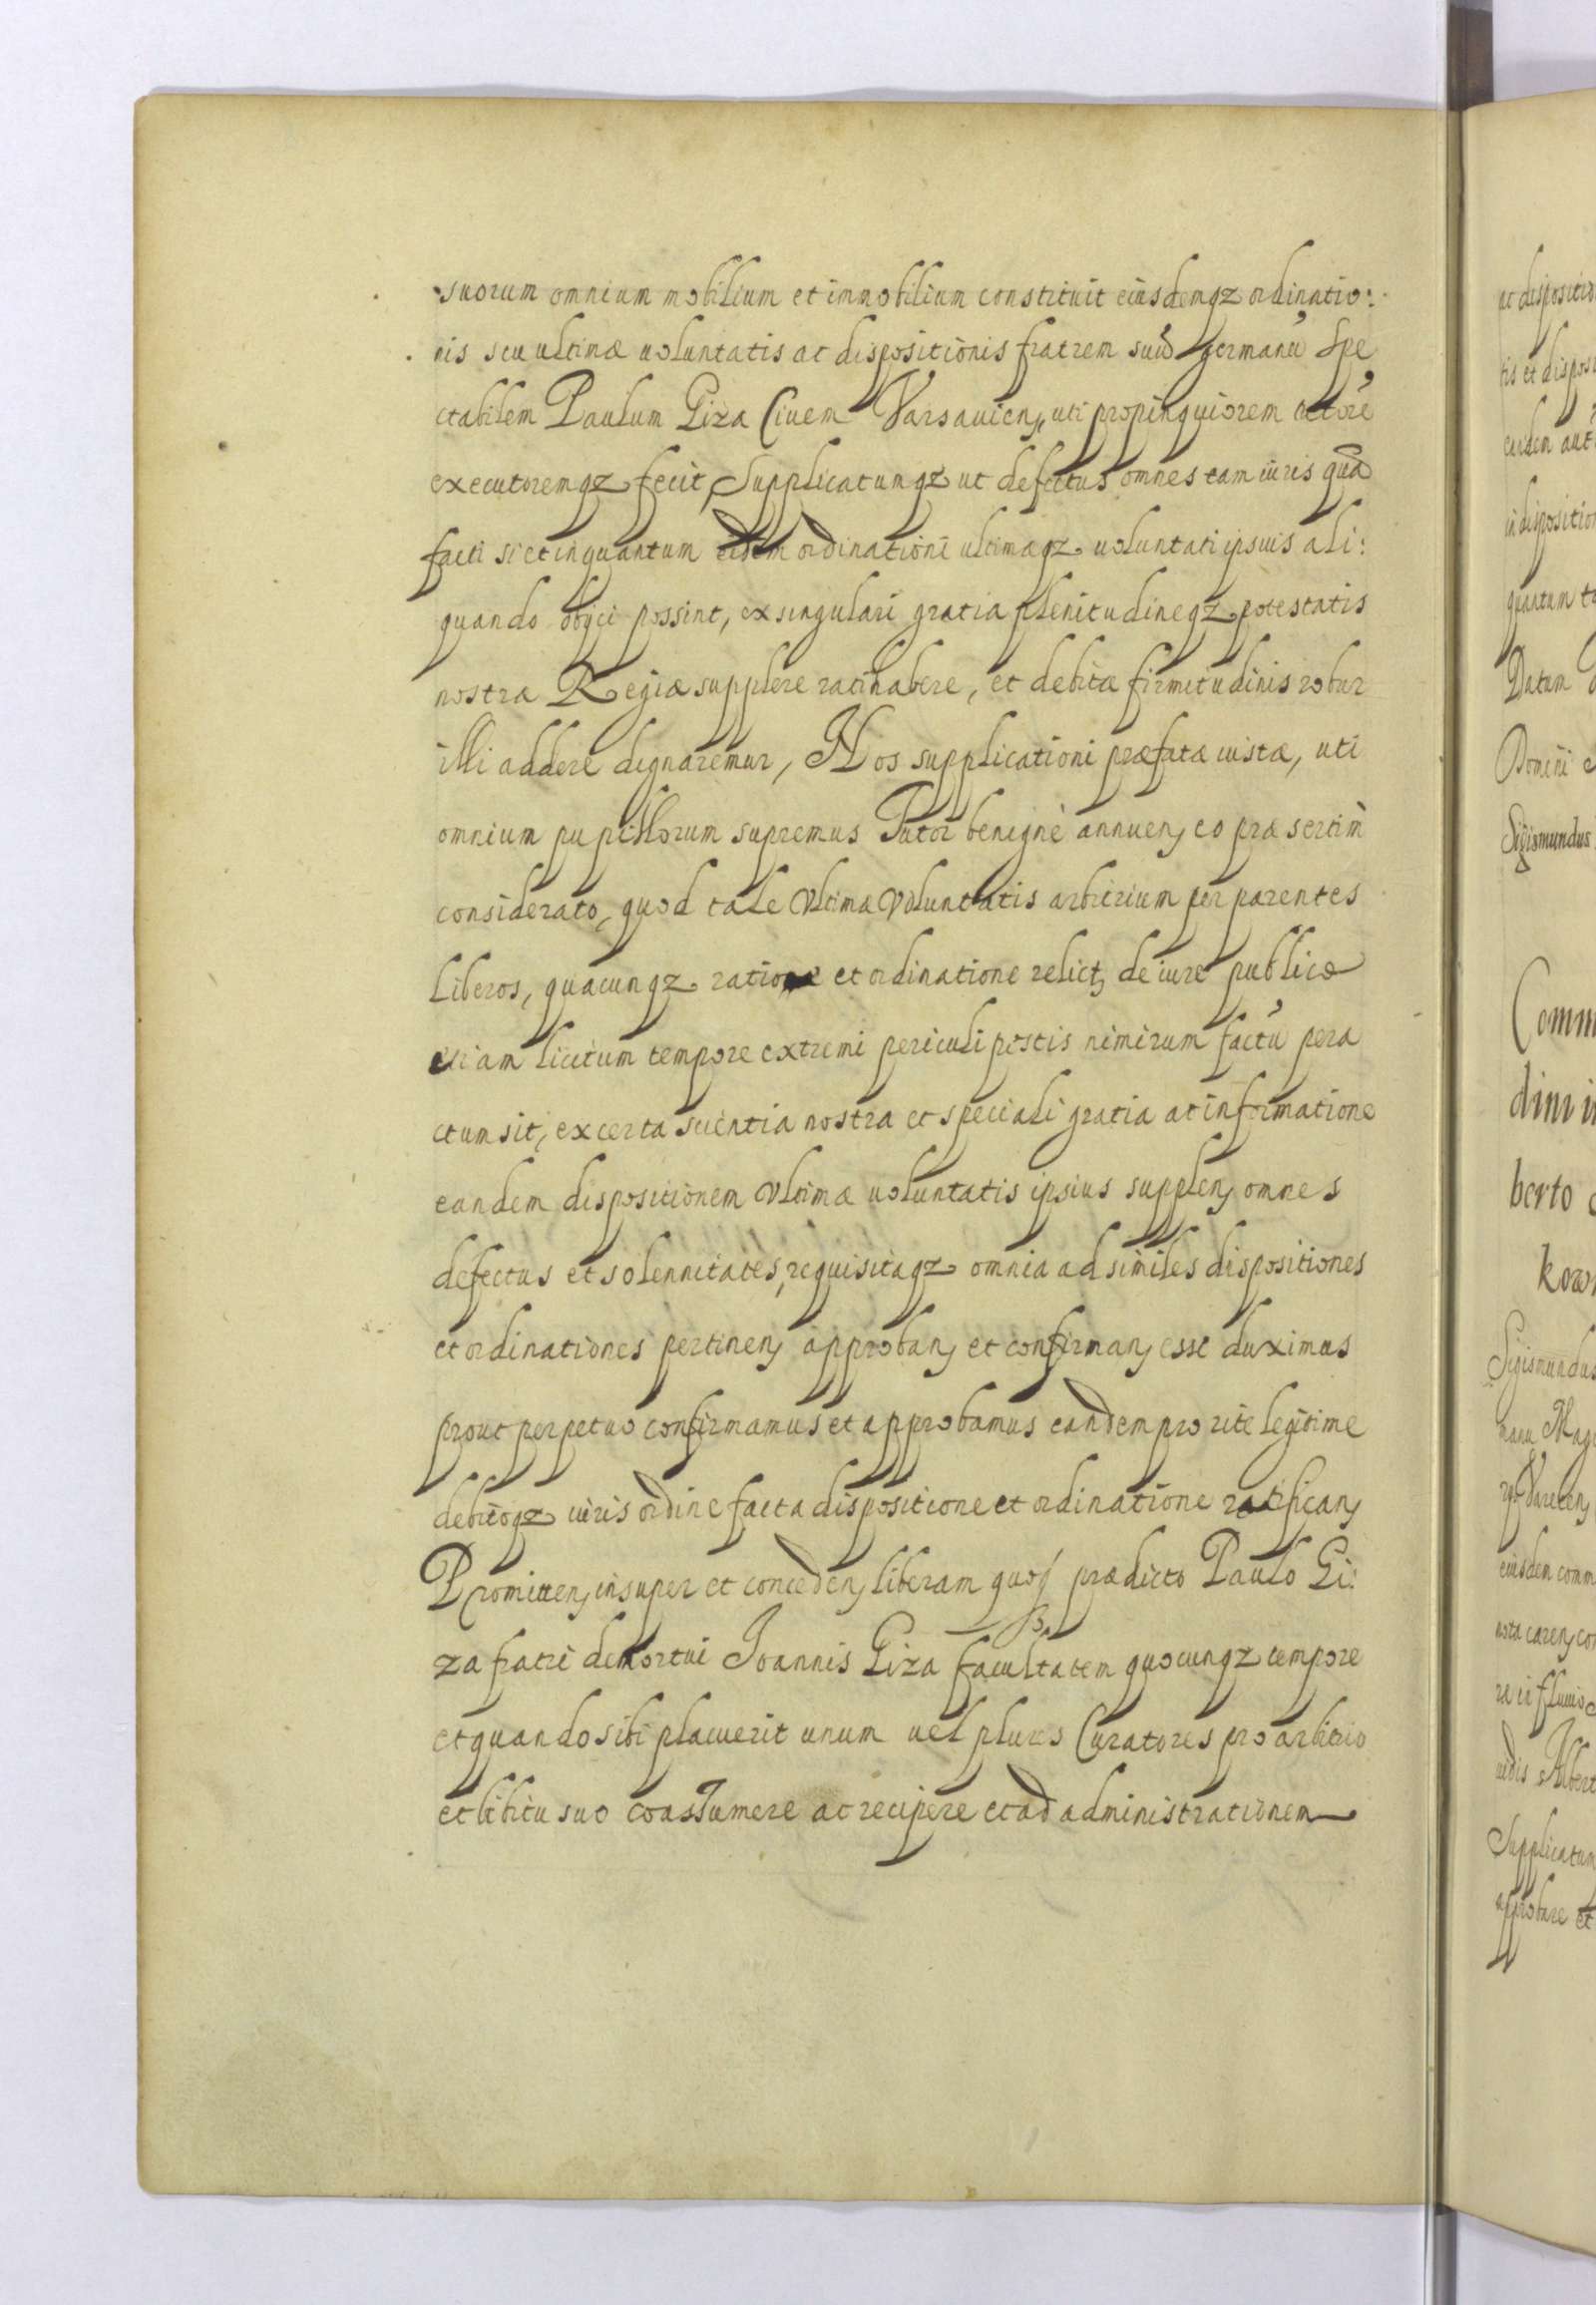 suorum omnium mobilium et immobilium constituit eiusdemqz ordinatio:
nis seu ultimæ uoluntatis ac dispositionis fratrem suũ germanũ Spe
ctabilem Paulum Giza Ciuem Varsauien, uti propinquiorem tutorẽ
executoremqz fecit, Supplicatumqz ut defectus omnes tam iuris quã
facti si et inquantum eidem ordinationi ultimæqz uoluntati ipsius ali:
quando obijci possint, ex singulari gratia plenitudineqz potestatis
nostræ Regiæ supplere rati habere, et debitæ firmitudinis robur
illi addere dignaremur, Nos supplicationi præfatæ iustæ, uti
omnium pupillorum supremus Tutor benignè annuen, eo præsertim
considerato, quod tale Vltimæ Voluntatis arbitrium per parentes
Liberos, quacunqz ratione et ordinatione relict, de iure publico
etiam licitum tempore extremi periculi pestis nimirum factũ pera
ctum sit, ex certa scientia nostra et speciali gratia ac informatione
eandem dispositionem Vltimæ uoluntatis ipsius supplen, omnes
defectus et solennitates, requisitaqz omnia ad similes dispositiones
et ordinationes pertinen, approban, et confirman, esse duximus
prout perpetuo confirmamus et approbamus eandem pro rite legitime
debitoqz iuris ordine facta dispositione et ordinatione ratifican,
Promitten, insuper et conceden, liberam quoqz prædicto Paulo Gi:
za fratri demortui Joannis Giza facultatem quocunqz tempore
et quando sibi placuerit unum uel plures Curatores pro arbitrio
et libitu suo coassumere ac recipere et ad administrationem
ac dispositio
tis et disposi
eiusdem
in dispositio
quantum
Datum
Domini
Sigismundus
Comm
dini
berto
kow
Sigismundus
manu Mag
Vareccen,
eiusdem comm
nota caren, con
ra in fluuio
Albert
Supplicatum
approbare et